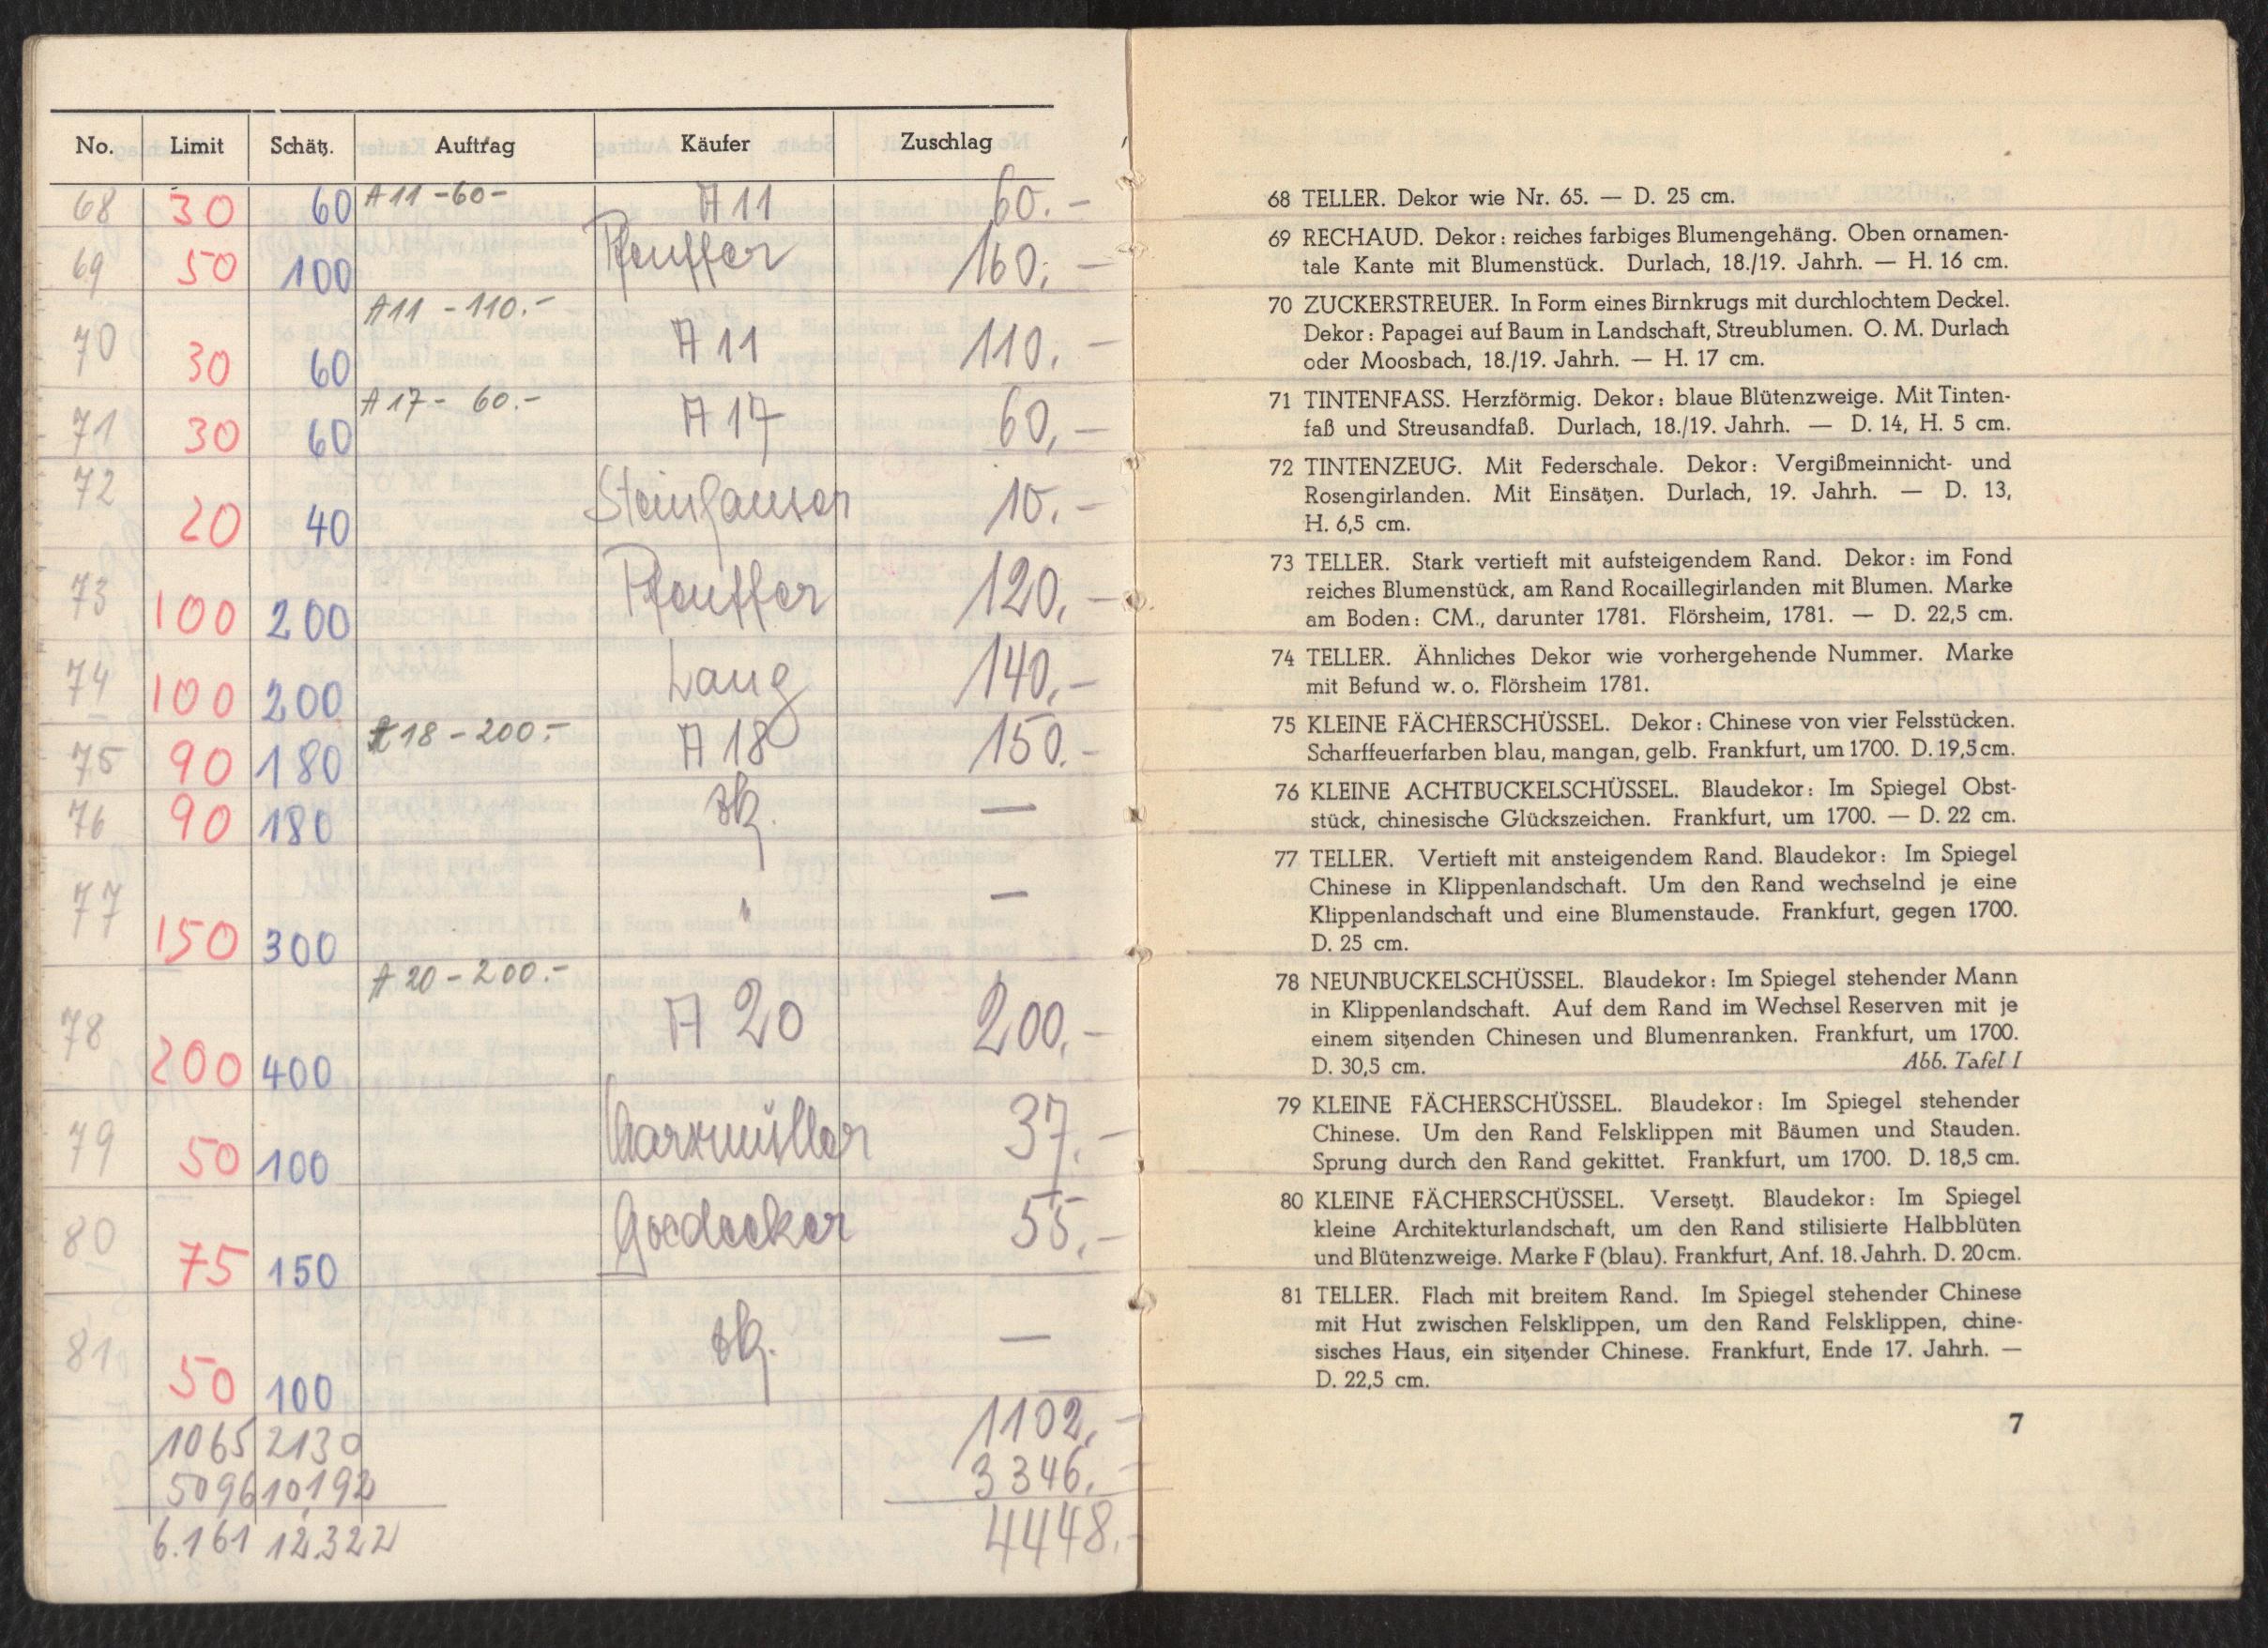 No. Limit Schätz. Auftrag Käufer Zuschlag
68 30 60 A11 -60- A11 60.-
69 50 100 Pfeuffer 160.-
70 30 60 A11 -110.- A11 110.-
71 30 60 A17- 60.- A17 60,-
72 20 40 Steinhauser 10.-
73 100 200 Pfeuffer 120,-
74 100 200 Lang 140,-
75 90 180 A18-200.- A18 150.-
76 90 180 —
77 150 300 " —
78 200 400 A20-200.- A20 200,-
79 50 100 37.-
80 75 150 Goedecker 55,-
81 50 100 —
1065 2130 1102,-
5096 10,192 3346.-
6.161 12,322 4448.-
68 TELLER. Dekor wie Nr. 65. — D. 25 cm.
69 RECHAUD. Dekor: reiches farbiges Blumengehäng. Oben ornamen-
tale Kante mit Blumenstück. Durlach, 18./19. Jahrh. — H. 16 cm.
70 ZUCKERSTREUER. In Form eines Birnkrugs mit durchlochtem Deckel.
Dekor: Papagei auf Baum in Landschaft, Streublumen. O. M. Durlach
oder Moosbach, 18./19. Jahrh. — H. 17 cm.
71 TINTENFASS. Herzförmig. Dekor: blaue Blütenzweige. Mit Tinten-
faß und Streusandfaß. Durlach, 18./19. Jahrh. — D. 14, H. 5 cm.
72 TINTENZEUG. Mit Federschale. Dekor: Vergißmeinnicht- und
Rosengirlanden. Mit Einsätzen. Durlach, 19. Jahrh. — D. 13,
H. 6,5 cm.
73 TELLER. Stark vertieft mit aufsteigendem Rand. Dekor: im Fond
reiches Blumenstück, am Rand Rocaillegirlanden mit Blumen. Marke
am Boden: CM., darunter 1781. Flörsheim, 1781. — D. 22,5 cm.
74 TELLER. Ähnliches Dekor wie vorhergehende Nummer. Marke
mit Befund w. o. Flörsheim 1781.
75 KLEINE FÄCHERSCHÜSSEL. Dekor: Chinese von vier Felsstücken.
Scharffeuerfarben blau, mangan, gelb. Frankfurt, um 1700. D. 19,5 cm.
76 KLEINE ACHTBUCKELSCHÜSSEL. Blaudekor: Im Spiegel Obst-
stück, chinesische Glückszeichen. Frankfurt, um 1700. — D. 22 cm.
77 TELLER. Vertieft mit ansteigendem Rand. Blaudekor: Im Spiegel
Chinese in Klippenlandschaft. Um den Rand wechselnd je eine
Klippenlandschaft und eine Blumenstaude. Frankfurt, gegen 1700.
D. 25 cm.
78 NEUNBUCKELSCHÜSSEL. Blaudekor: Im Spiegel stehender Mann
in Klippenlandschaft. Auf dem Rand im Wechsel Reserven mit je
einem sitzenden Chinesen und Blumenranken. Frankfurt, um 1700.
D. 30,5 cm. Abb. Tafel I
79 KLEINE FÄCHERSCHÜSSEL. Blaudekor: Im Spiegel stehender
Chinese. Um den Rand Felsklippen mit Bäumen und Stauden.
Sprung durch den Rand gekittet. Frankfurt, um 1700. D. 18,5 cm.
80 KLEINE FÄCHERSCHÜSSEL. Versetzt. Blaudekor: Im Spiegel
kleine Architekturlandschaft, um den Rand stilisierte Halbblüten
und Blütenzweige. Marke F (blau). Frankfurt, Anf. 18. Jahrh. D. 20 cm.
81 TELLER. Flach mit breitem Rand. Im Spiegel stehender Chinese
mit Hut zwischen Felsklippen, um den Rand Felsklippen, chine-
sisches Haus, ein sitzender Chinese. Frankfurt, Ende 17. Jahrh. —
D. 22,5 cm.
7